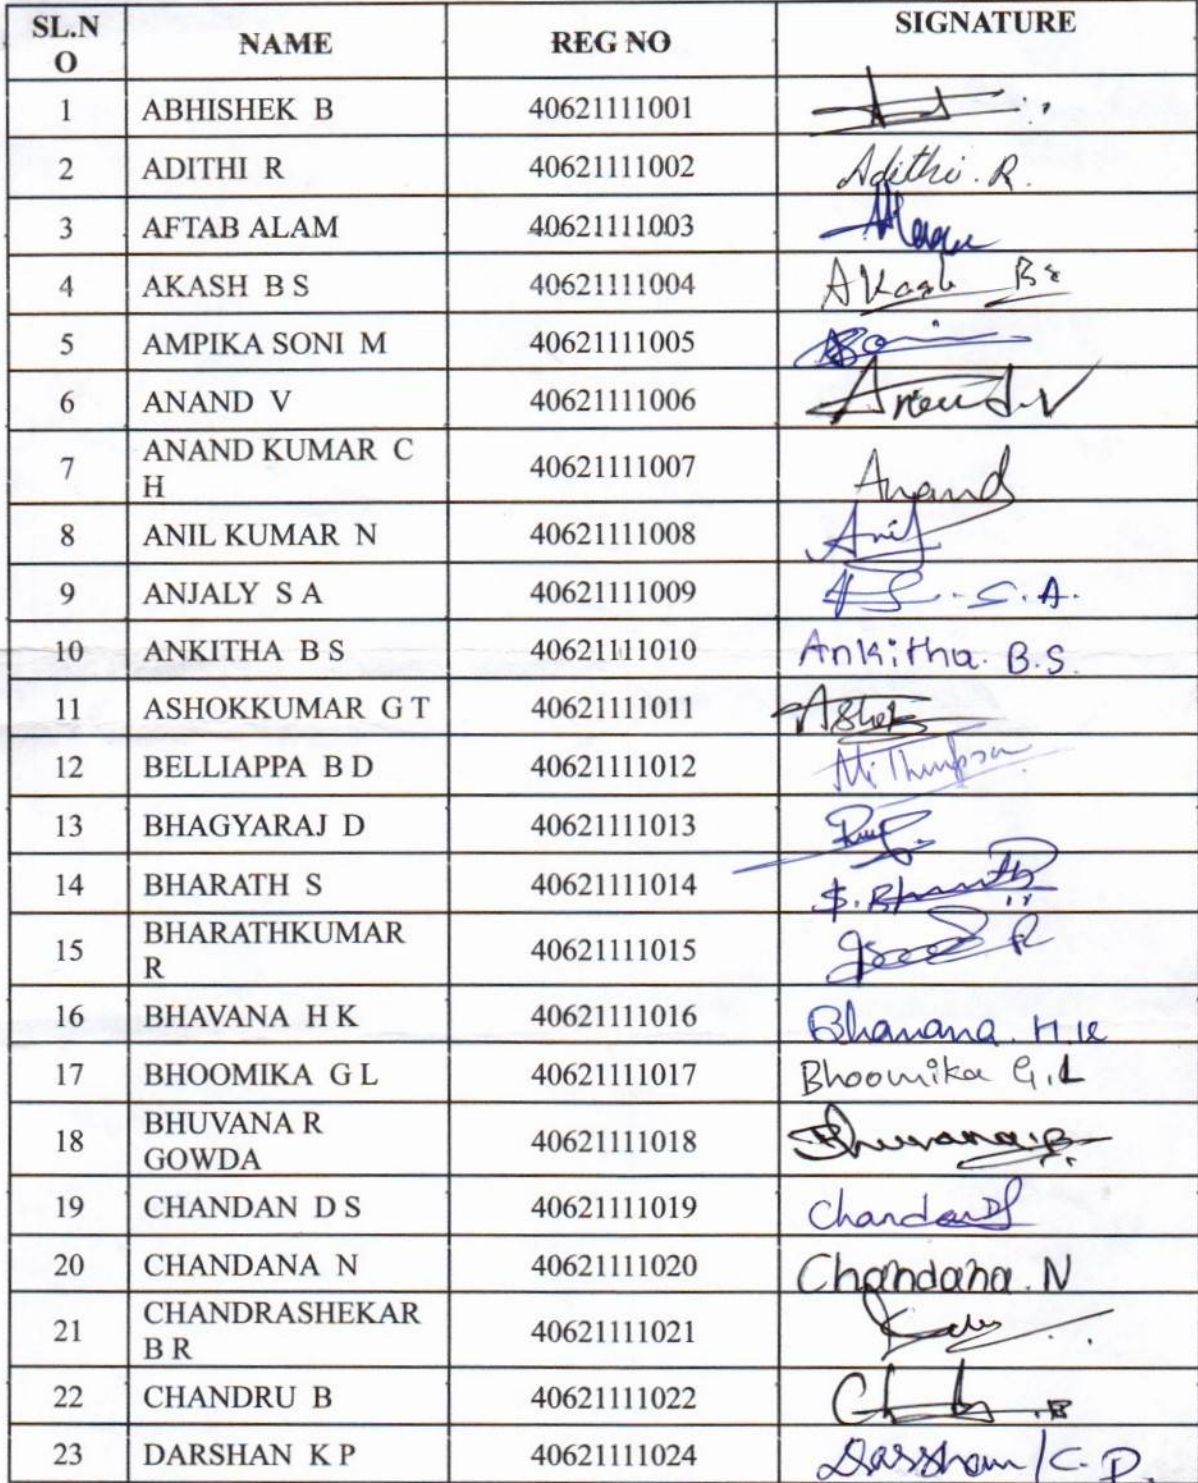 SL.N
O NAME REG NO SIGNATURE
1 ABHISHEK B 40621111001
2 ADITHI R 40621111002 Adithi. R.
3 AFTAB ALAM 40621111003
4 AKASH B S 40621111004 AKash Bs
5 AMPIKA SONI M 40621111005 Soni
6 ANAND V 40621111006 Anand.V
7 ANAND KUMAR C
H 40621111007 Anand
8 ANIL KUMAR N 40621111008 Anil
9 ANJALY S A 40621111009 S.A.
10 ANKITHA B S 40621111010 Ankitha. B.S.
11 ASHOKKUMAR G T 40621111011 Ashok
12 BELLIAPPA B D 40621111012
13 BHAGYARAJ D 40621111013
14 BHARATH S 40621111014 S. Bharath
15 BHARATHKUMAR
R 40621111015
16 BHAVANA H K 40621111016 Bhavana. H.K
17 BHOOMIKA G L 40621111017 Bhoomika G.L
18 BHUVANA R
GOWDA 40621111018 Bhuvana.R
19 CHANDAN D S 40621111019 Chandan DS
20 CHANDANA N 40621111020 Chandana. N
21 CHANDRASHEKAR
B R 40621111021
22 CHANDRU B 40621111022
23 DARSHAN K P 40621111024 Darshan K.P.